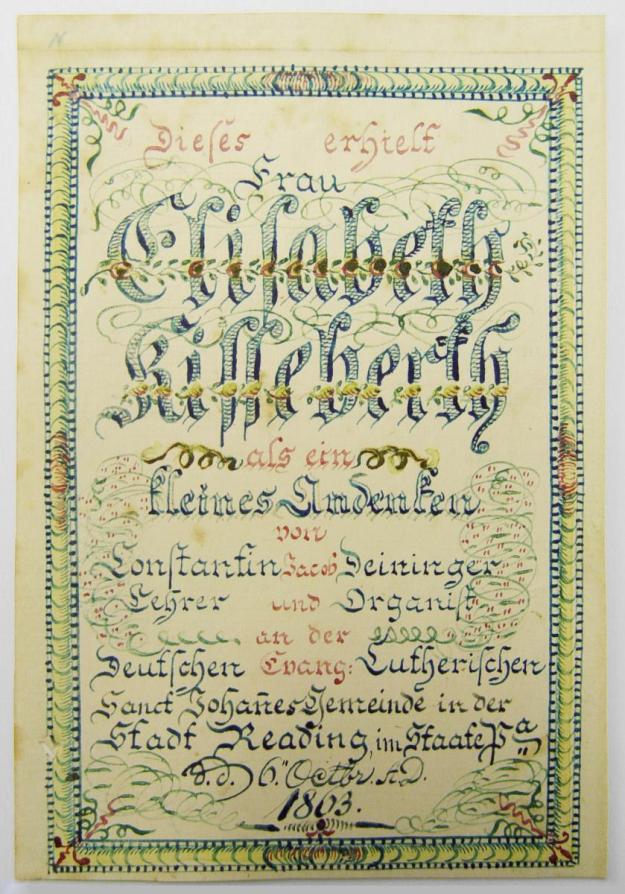 Dieses erhielt
Frau
Elisabeth
Kisseberth
als ein
kleines Andenken
von
Constantin Jacob Deininger
Lehrer und Organist
an der
Deutschen Evang: Lutherischen
Sanct Johan̄es Gemeinde in der
Stadt Reading, im Staate Pa
d. d. 6." Octbr. A.D.
1803.